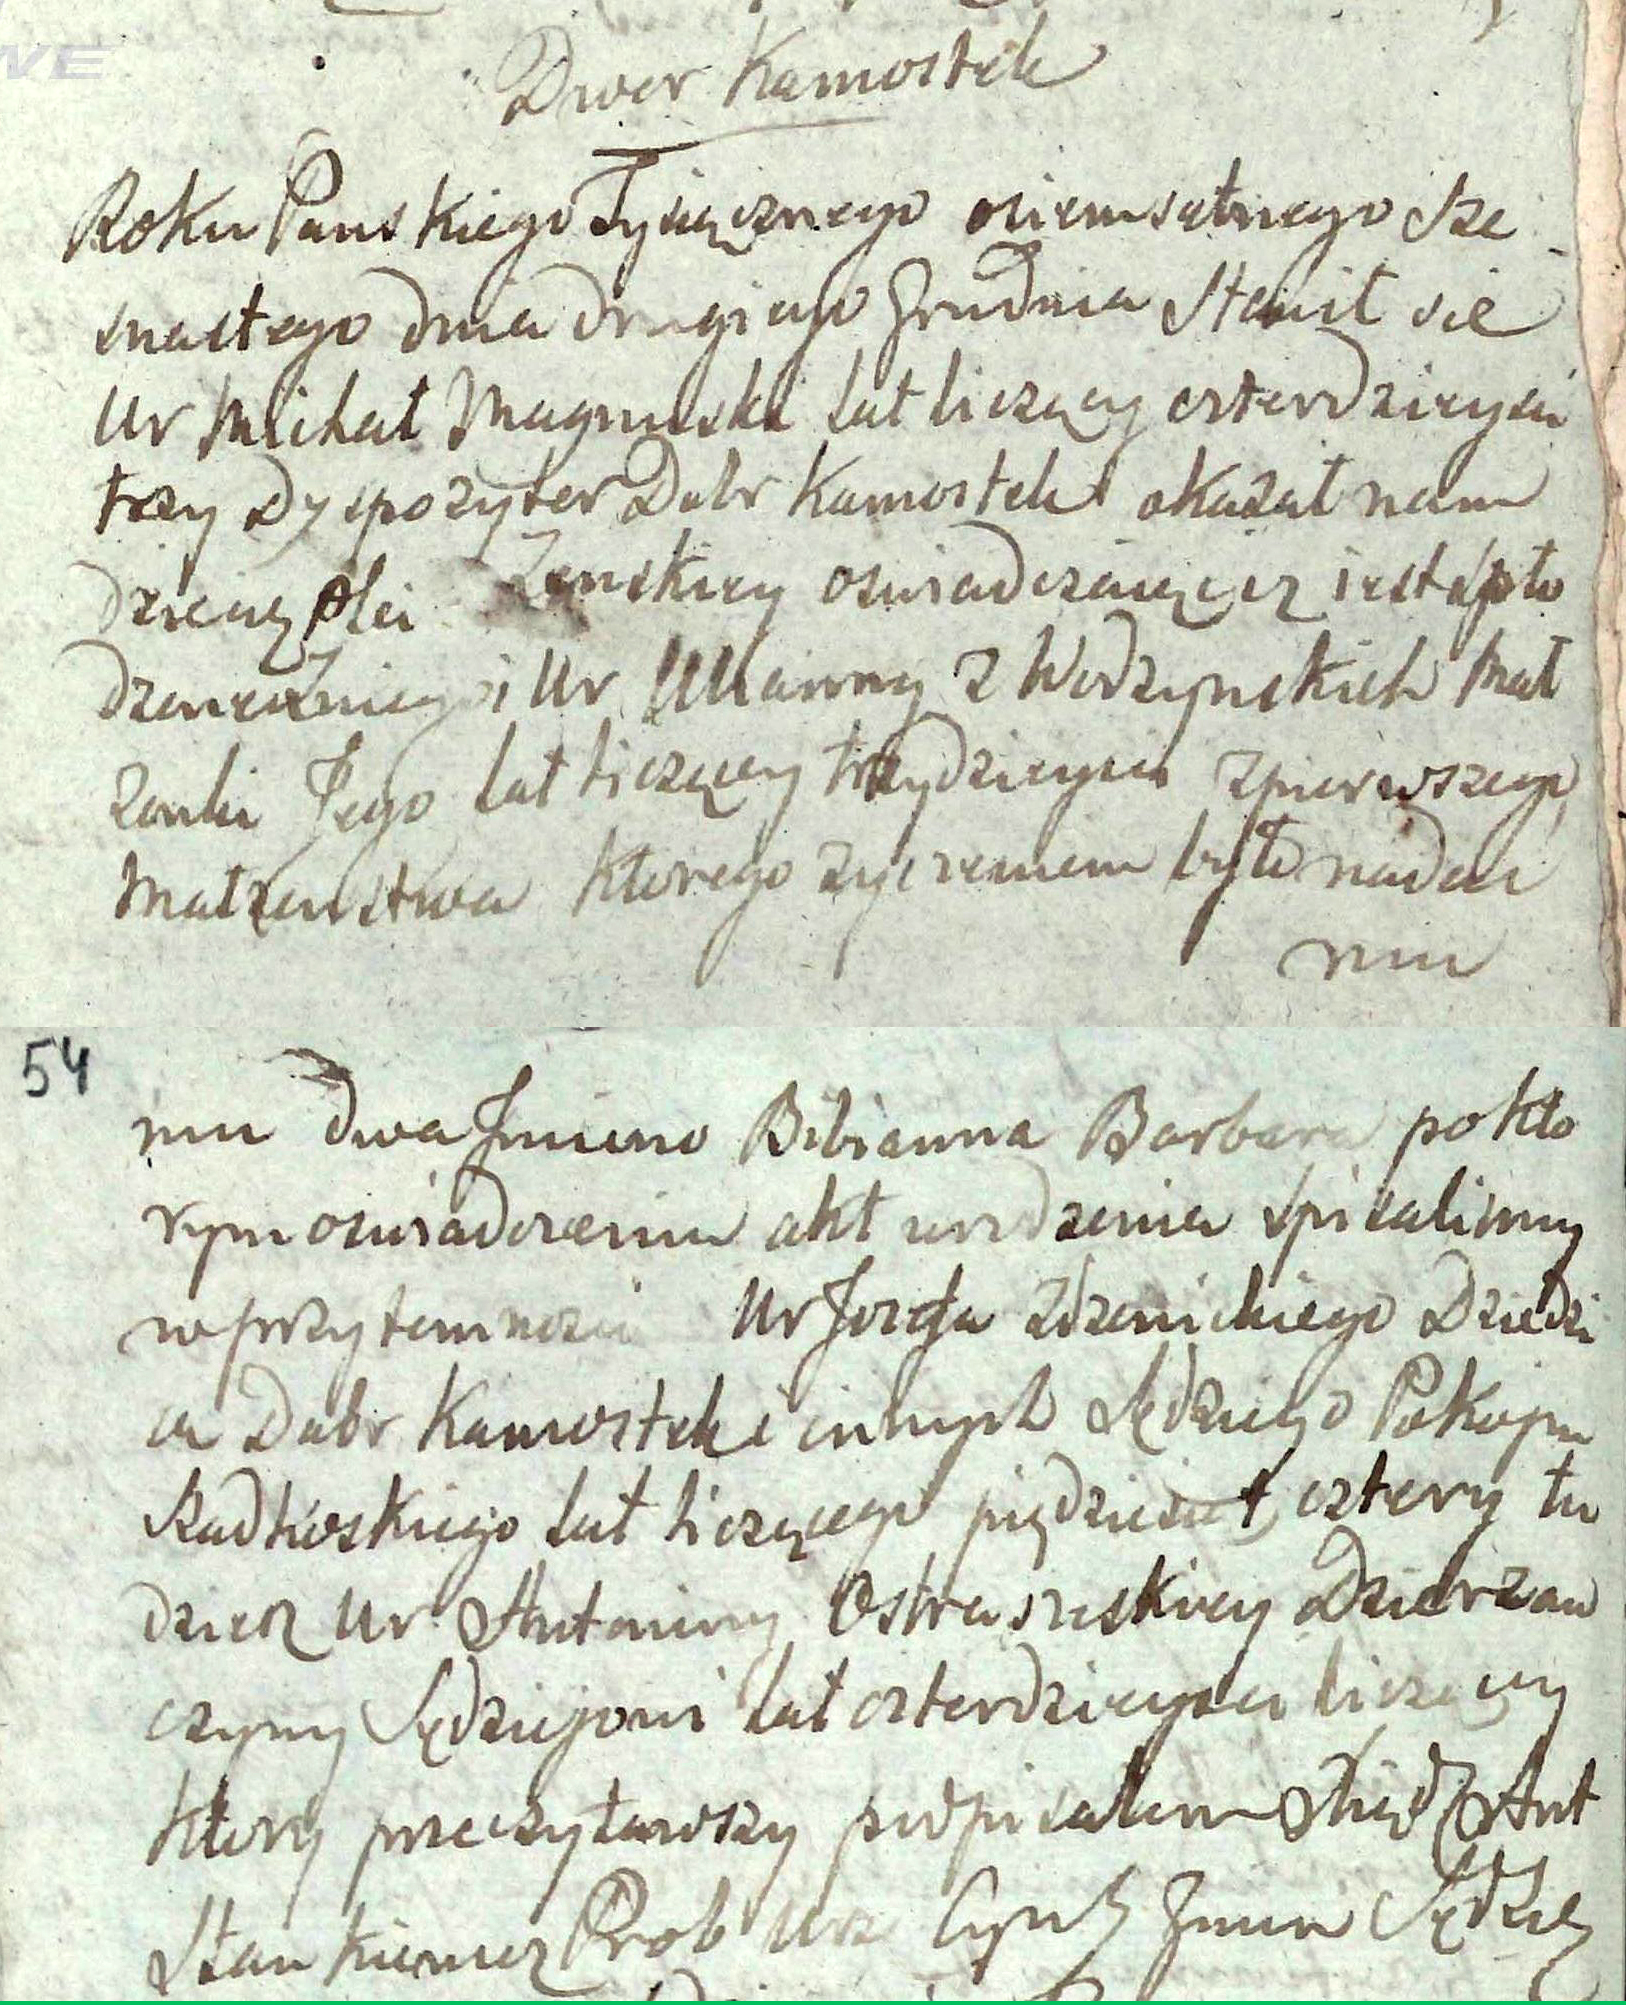 NE
Dwor Kamostek
Roku Panskiego Tysiącznego osiemsetnego sze
snastego dnia drugiego Grudnia Stawił sie
Ur Michał Magnuski lat liczący czterdziesci
trzy Dyspozytor Dobr Kamostek okazał nam
dziecię Płci Zenskiey oswiadczaiąc iz iest spło
dzone z niego i Ur Maryanny z Wodzynskich Mał
zonki Jego lat liczący trzydziesci z pierwszego
Małzenstwa ktorego zyczeniem było nadac
mu
54
mu dwa Jmiona Bibianna Barbara po kto
rym oswiadczeniu akt urodzenia spisalismy
w przytomnosci Ur Jozefa Zdzenickiego Dziedzi
ca Dobr Kamostek i innych Sędziego Pokoju
Szadkoskiego lat liczącego piędziesiąt cztery tu
dziez Ur Antoniny Ostraszeskiey Dzierzaw
czyny Sędzigoni lat czterdziesci liczący
ktory przeczytawszy podpisalem Xiądz Ant
Stankiewicz Prob Urz Cyw Gmin Sędzie